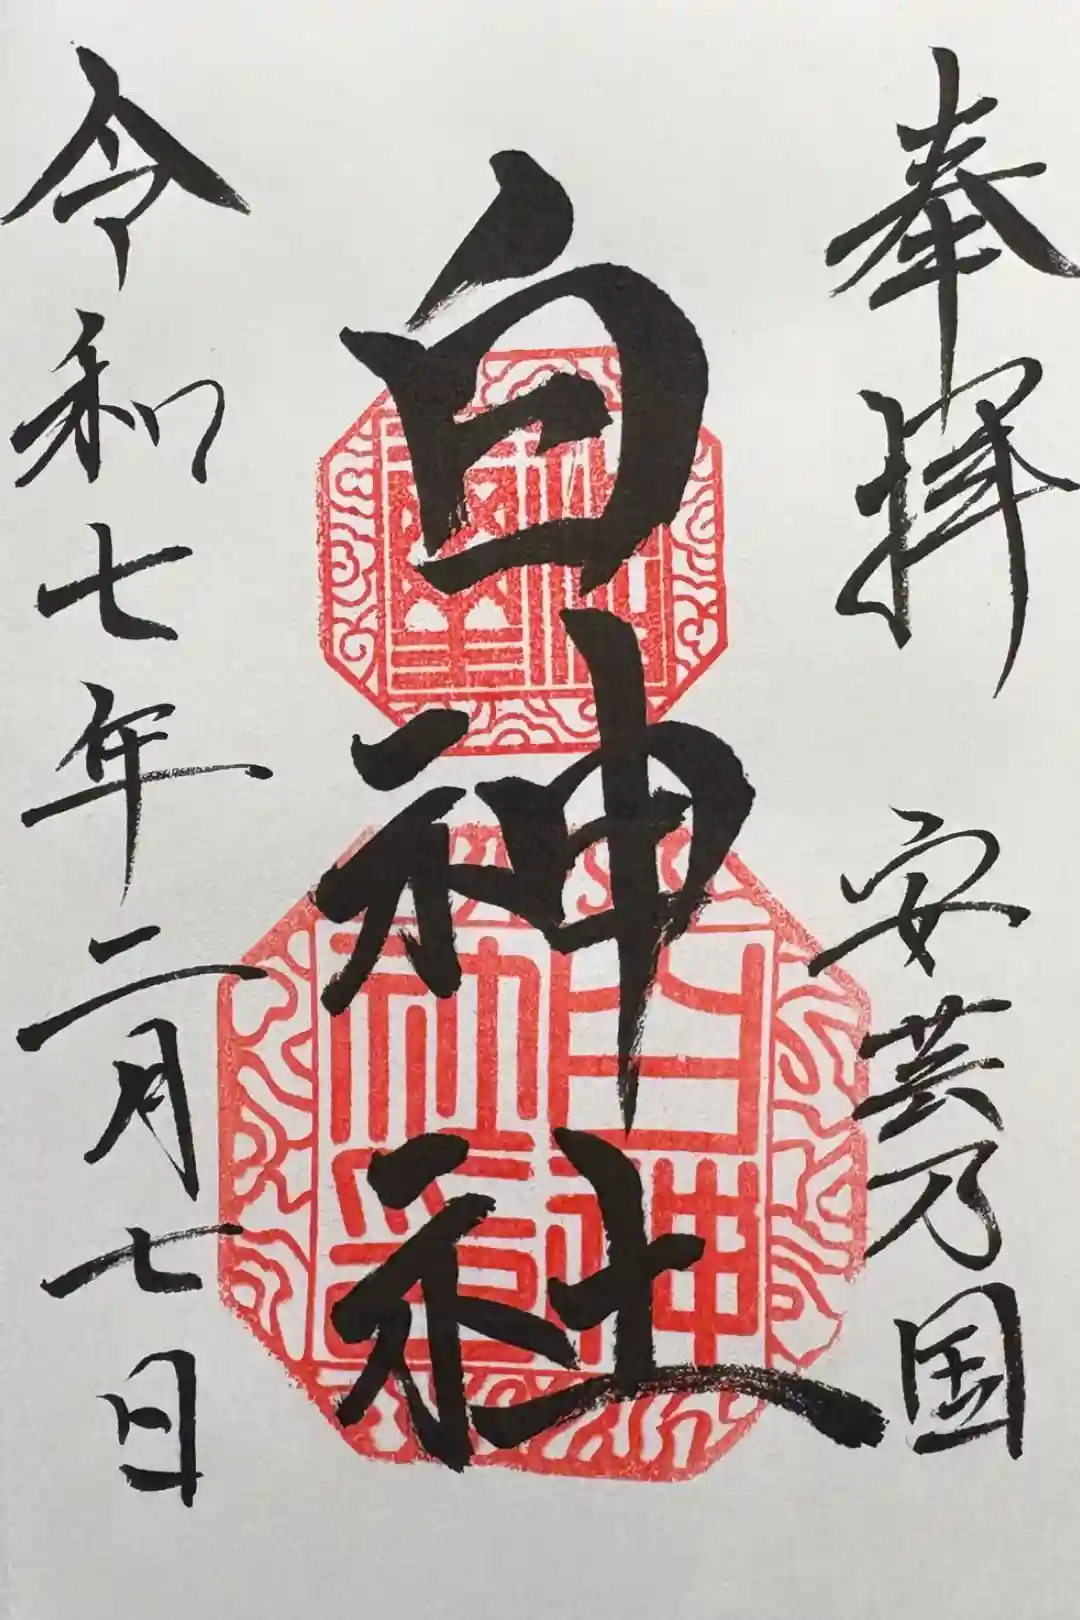 奉拝 安芸乃国
白神社
令和七年二月七日
白神社印